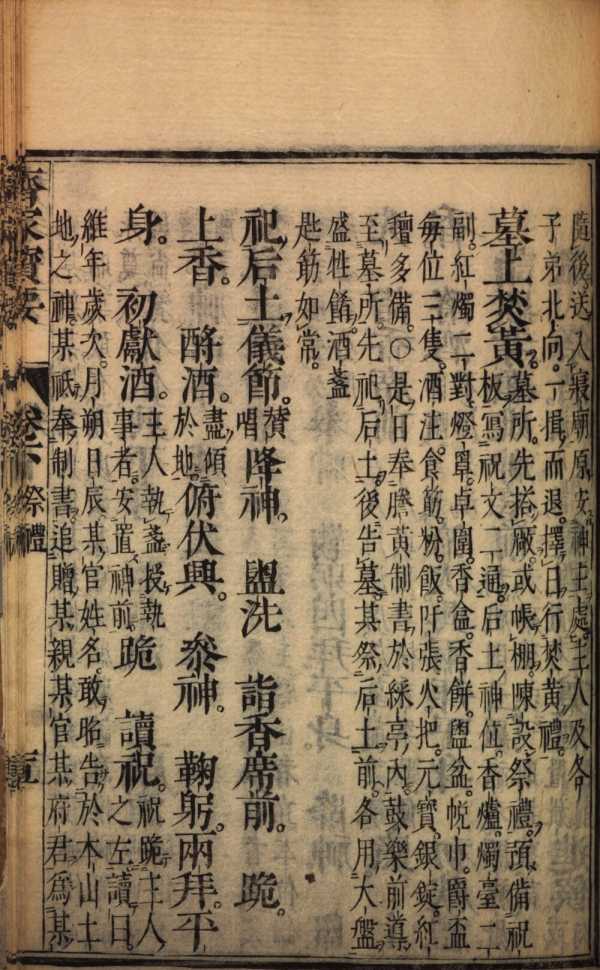 隨後送入寢廟原安神主處主人及各
子弟北向一揖而退擇日行焚黃禮
墓上焚黃。墓所先搭廠或帳棚陳設祭禮預備祝
板寫祝文二通后土神位香爐燭臺二
副紅燭二對燈罩卓圍香盒香餅盥盆帨巾爵盃
每位三隻酒注食筯粉飯吁張火把元寶銀錠紅
氊多備○是日奉謄黃制書於綵亭內鼓樂前導
至墓所先祀后土後告墓其祭后土前各用大盤
盛牲餚酒盞
匙筯如常。
祀后土儀節。贊唱降神。 盥洗 詣香席前。 跪。
上香。 酹酒。盡傾於地。俯伏興。 參神。 鞠躬。兩拜。平
身。 初獻酒。主人執盞授執事者安置神前 跪 讀祝。祝跪主人之左讀曰
維年歲次月朔日辰某官姓名敢昭告於本山土
地之神某祇奉制書追贈某親某官某府君爲某
齊家寶要 卷下 祭禮